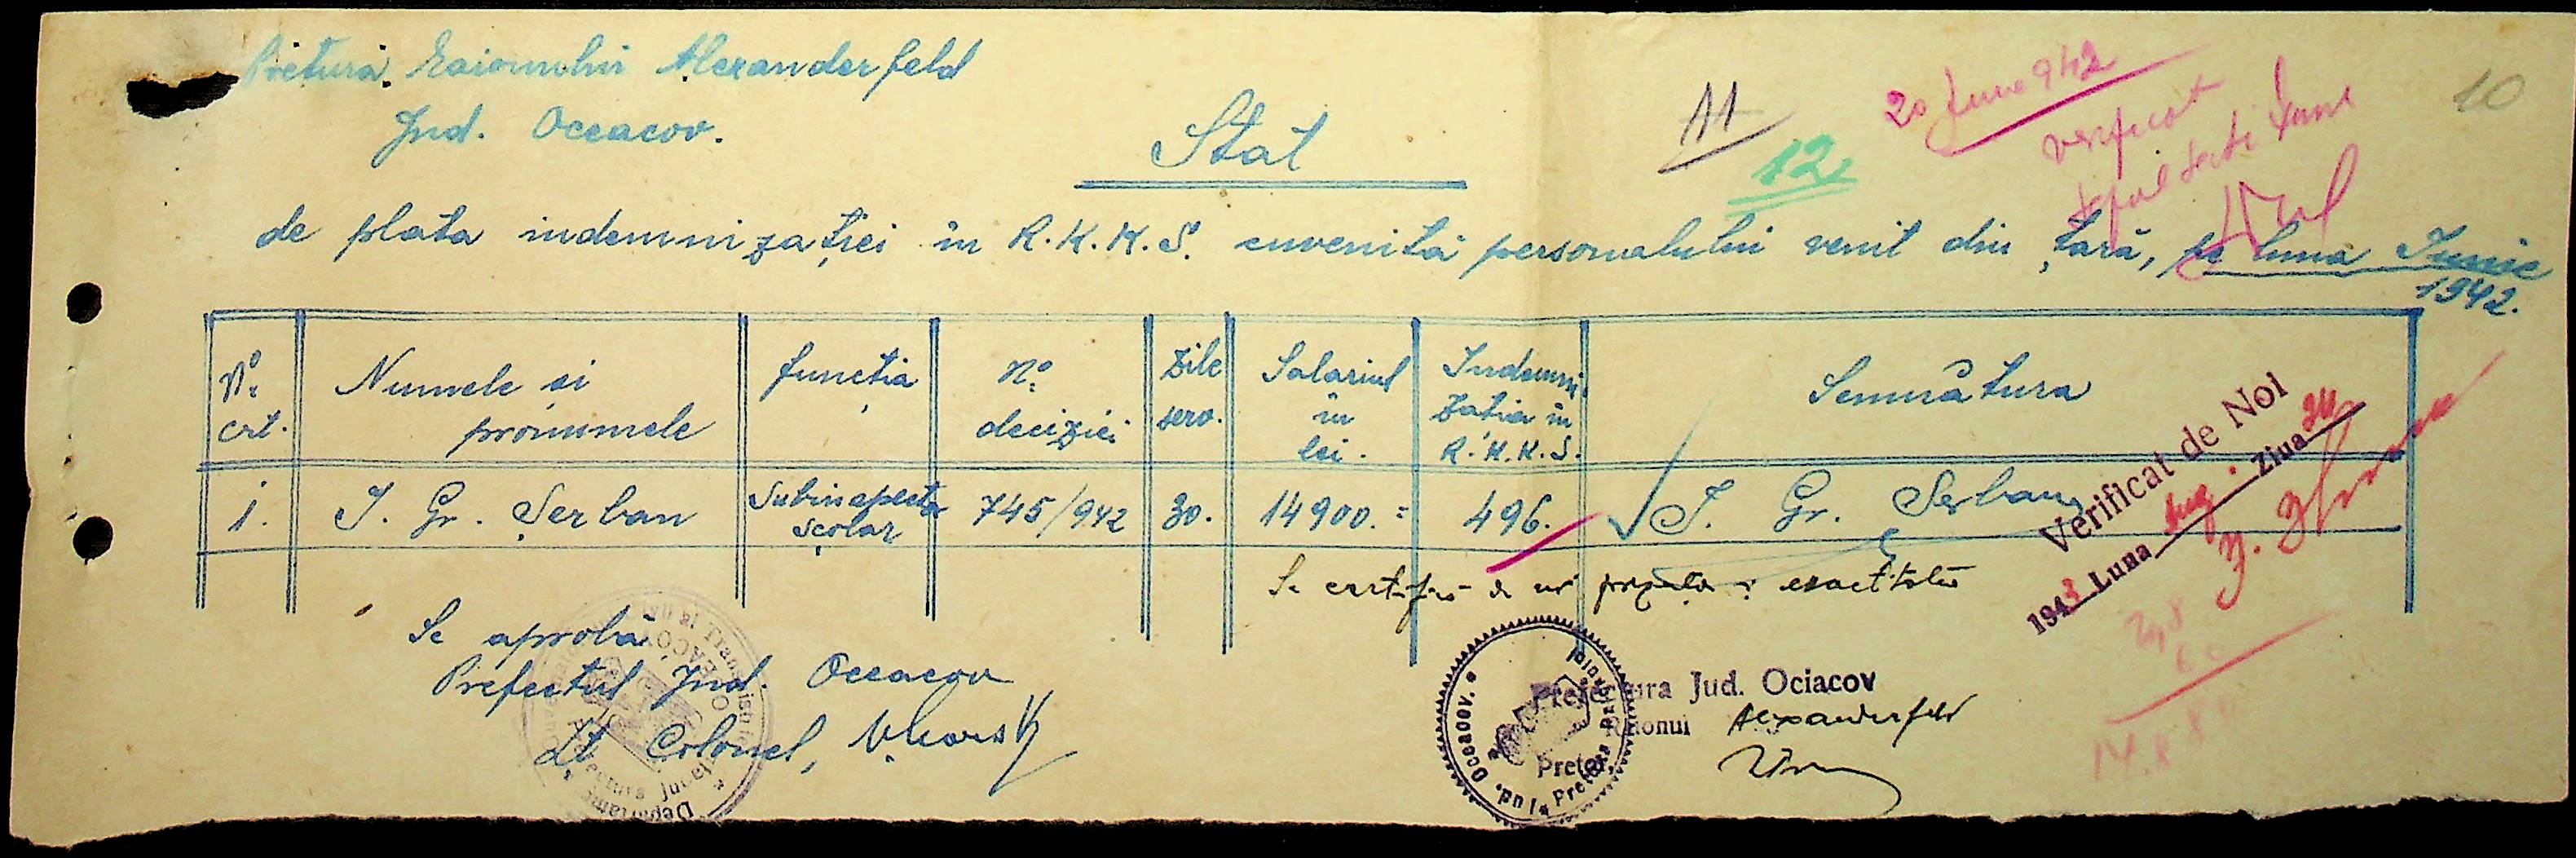 Pretura Raionului Alexanderfeld
Jud. Oceacov.
Stat
11
12
20 June 942
verificat
10
de plata indemnizației in R.K.K.S. cuvenită personalului venit din țară, pe luna Iunie
1942.
No. crt. Numele si pronumele funcția No. deciziei Zile serv. Salariul in lei. Indemnizatia in R.K.K.S. Semnătura
1. I. Gr. Șerban Subinspector școlar 745/942 30. 14900.= 496. I. Gr. Șerban
Verificat de Noi
1943 Luna Aug. Ziua 24
Se certifică de noi exactitatea
Se aprobă,
Prefectul Jud. Oceacov
Lt Colonel,
Prefectura Jud. Ociacov
Raionul Alexanderfeld
Pretor,
Jud. Oceacov. Pretura